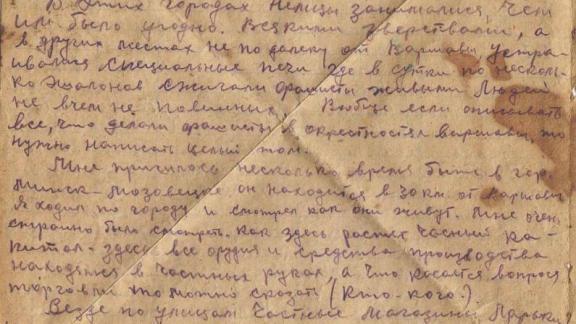 В этих городах немцы занимались, чем
им было угодно. Всякими зверствами, а
в других местах не по далеку от Варшавы устра-
ивались специальные печи где в сутки по несколь-
ко эшалонов сжигали фашисты живыми людей
не вчем не повинных. Вообще если описывать
все, что делали фашисты в окрестностях варшавы, то
нужно написать целый том.
Мне пришлось несколько время быть в гор.
Минск-Мозовецке он находится в 30 км. от варшавы
Я ходил по городу и смотрел как они живут. Мне очень
странно было смотреть. как здесь растет часный ка-
питал - здесь все орудия и средства производства
находятся в частных руках, а что косается вопроса
торговли то можно сказать (Кто-кого.).
Везде по улицам частные магазины Ларьки